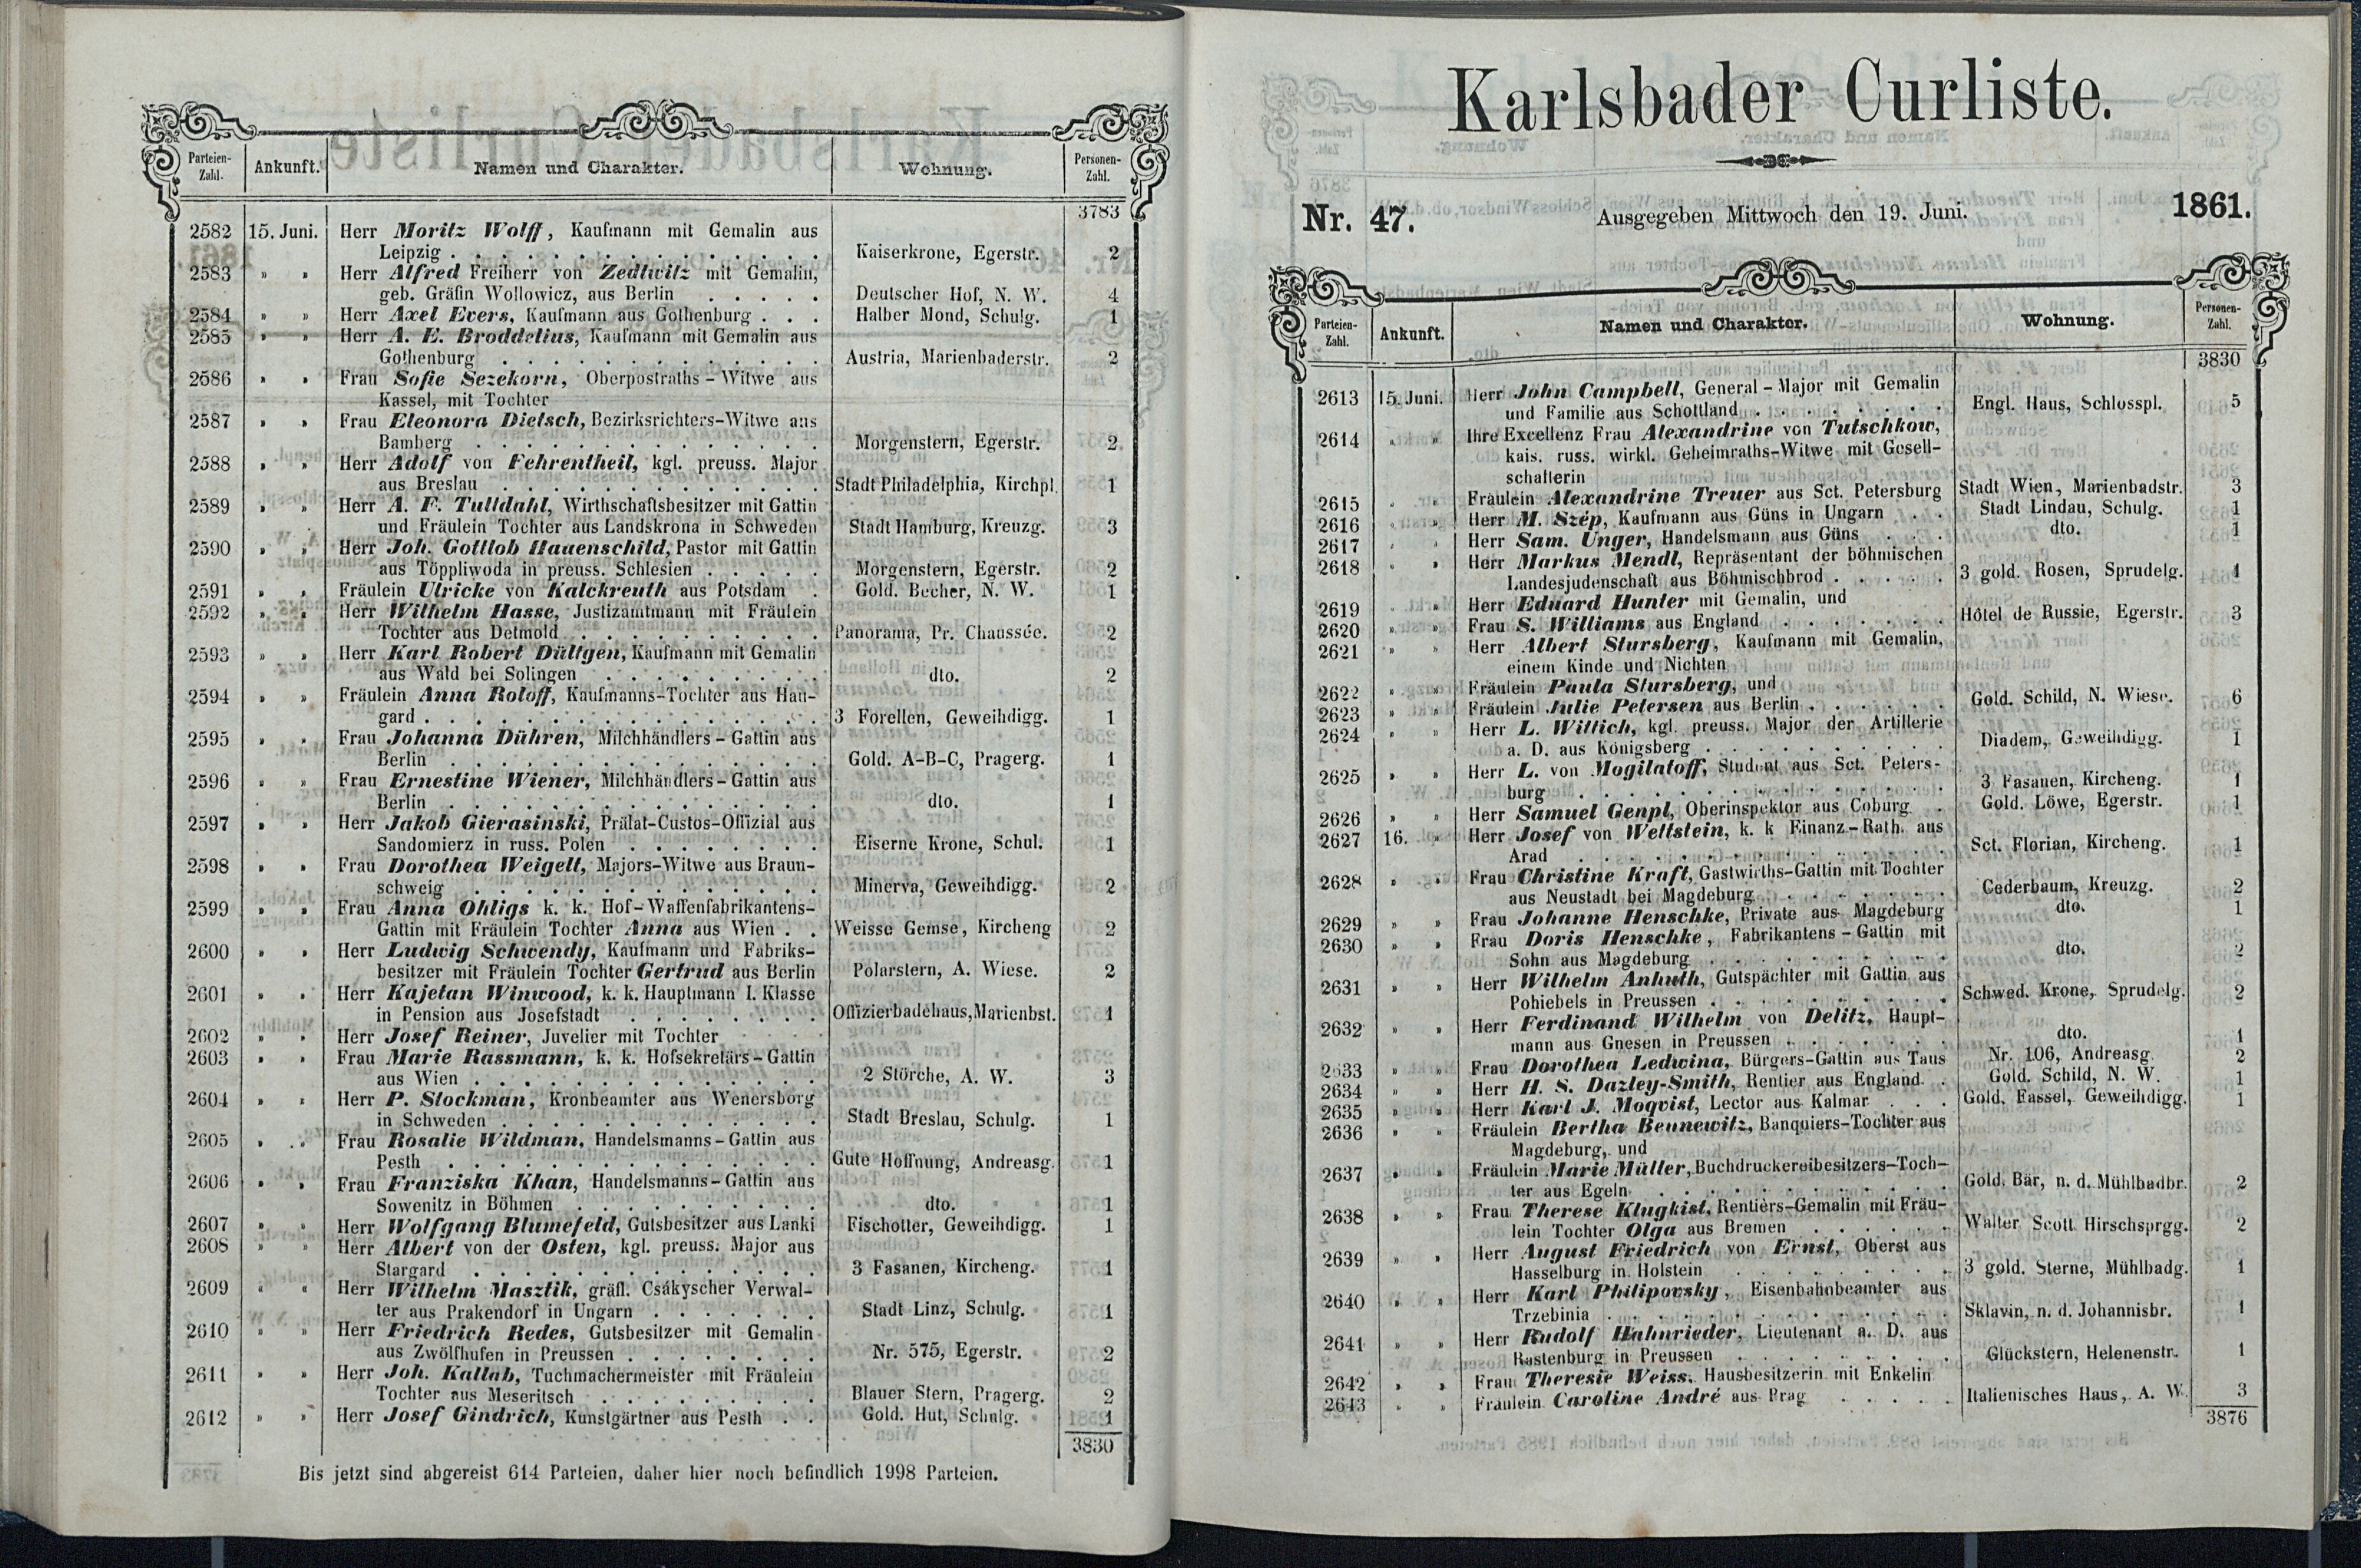 Parteien-Zahl. Ankunft. Namen und Charakter. Wohnung. Personen-Zahl.
3783
2582 15. Juni. Herr Moritz Wolff, Kaufmann mit Gemalin aus
Leipzig . . . Kaiserkrone, Egerstr. 2
2583 » » Herr Alfred Freiherr von Zedlwitz mit Gemalin,
geb. Gräfin Wollowicz, aus Berlin . . . Deutscher Hof, N. W. 4
2584 » » Herr Axel Evers, Kaufmann aus Gothenburg . . . Halber Mond, Schulg. 1
2585 » » Herr A. E. Broddelius, Kaufmann mit Gemalin aus
Gothenburg . . . Austria, Marienbaderstr. 2
2586 » » Frau Sofie Sezekorn, Oberpostraths-Witwe aus
Kassel, mit Tochter
2587 » » Frau Eleonora Dietsch, Bezirksrichters-Witwe aus
Bamberg . . . Morgenstern, Egerstr. 2
2588 » » Herr Adolf von Fehrentheil, kgl. preuss. Major
aus Breslau . . . Stadt Philadelphia, Kirchpl. 1
2589 » » Herr A. F. Tulldahl, Wirthschaftsbesitzer mit Gattin
und Fräulein Tochter aus Landskrona in Schweden Stadt Hamburg, Kreuzg. 3
2590 » » Herr Joh. Gottlob Hauenschild, Pastor mit Gattin
aus Töppliwoda in preuss. Schlesien . . . Morgenstern, Egerstr. 2
2591 » » Fräulein Ulricke von Kalckreuth aus Potsdam . Gold. Becher, N. W. 1
2592 » » Herr Wilhelm Hasse, Justizamtmann mit Fräulein
Tochter aus Detmold . . . Panorama, Pr. Chaussée. 2
2593 » » Herr Karl Robert Dültgen, Kaufmann mit Gemalin
aus Wald bei Solingen . . . dto. 2
2594 » » Fräulein Anna Roloff, Kaufmanns-Tochter aus Han-
gard . . . 3 Forellen, Geweihdigg. 1
2595 » » Frau Johanna Dühren, Milchhändlers-Gattin aus
Berlin . . . Gold. A-B-C, Pragerg. 1
2596 » » Frau Ernestine Wiener, Milchhändlers-Gattin aus
Berlin . . . dto. 1
2597 » » Herr Jakob Gierasinski, Prälat-Custos-Offizial aus
Sandomierz in russ. Polen . . . Eiserne Krone, Schul. 1
2598 » » Frau Dorothea Weigelt, Majors-Witwe aus Braun-
schweig . . . Minerva, Geweihdigg. 2
2599 » » Frau Anna Ohligs k. k. Hof-Waffenfabrikantens-
Gattin mit Fräulein Tochter Anna aus Wien . . Weisse Gemse, Kircheng 2
2600 » » Herr Ludwig Schwendy, Kaufmann und Fabriks-
besitzer mit Fräulein Tochter Gertrud aus Berlin Polarstern, A. Wiese. 2
2601 » » Herr Kajetan Winwood, k. k. Hauptmann I. Klasse
in Pension aus Josefstadt . . . Offizierbadehaus, Marienbst. 1
2602 » » Herr Josef Reiner, Juvelier mit Tochter
2603 » » Frau Marie Rassmann, k. k. Hofsekretärs-Gattin
aus Wien . . . 2 Störche, A. W. 3
2604 » » Herr P. Stockman, Kronbeamter aus Wenersborg
in Schweden . . . Stadt Breslau, Schulg. 1
2605 » » Frau Rosalie Wildman, Handelsmanns-Gattin aus
Pesth . . . Gute Hoffnung, Andreasg. 1
2606 » » Frau Franziska Khan, Handelsmanns-Gattin aus
Sowenitz in Böhmen . . . dto. 1
2607 » » Herr Wolfgang Blumefeld, Gutsbesitzer aus Lanki Fischotter, Geweihdigg. 1
2608 » » Herr Albert von der Osten, kgl. preuss. Major aus
Stargard . . . 3 Fasanen, Kircheng. 1
2609 » » Herr Wilhelm Masztik, gräfl. Csákyscher Verwal-
ter aus Prakendorf in Ungarn . . . Stadt Linz, Schulg. 1
2610 » » Herr Friedrich Redes, Gutsbesitzer mit Gemalin
aus Zwölfhufen in Preussen . . . Nr. 575, Egerstr. 2
2611 » » Herr Joh. Kallab, Tuchmachermeister mit Fräulein
Tochter aus Meseritsch . . . Blauer Stern, Pragerg. 2
2612 » » Herr Josef Gindrich, Kunstgärtner aus Pesth . . Gold. Hut, Schulg. 1
3830
Bis jetzt sind abgereist 614 Parteien, daher hier noch befindlich 1998 Parteien.
Karlsbader Curliste.
Nr. 47. Ausgegeben Mittwoch den 19. Juni. 1861.
Parteien-Zahl. Ankunft. Namen und Charakter. Wohnung. Personen-Zahl.
3830
2613 15. Juni. Herr John Campbell, General-Major mit Gemalin
und Familie aus Schottland . . . Engl. Haus, Schlosspl. 5
2614 » » Ihre Excellenz Frau Alexandrine von Tutschkow,
kais. russ. wirkl. Geheimraths-Witwe mit Gesell-
schafterin
2615 » » Fräulein Alexandrine Treuer aus Sct. Petersburg Stadt Wien, Marienbadstr. 3
2616 » » Herr M. Szép, Kaufmann aus Güns in Ungarn . . Stadt Lindau, Schulg. 1
2617 » » Herr Sam. Unger, Handelsmann aus Güns . . . dto. 1
2618 » » Herr Markus Mendl, Repräsentant der böhmischen
Landesjudenschaft aus Böhmischbrod . . . 3 gold. Rosen, Sprudelg. 1
2619 » » Herr Eduard Hunter mit Gemalin, und
2620 » » Frau S. Williams aus England . . . Hôtel de Russie, Egerstr. 3
2621 » » Herr Albert Stursberg, Kaufmann mit Gemalin,
einem Kinde und Nichten
2622 » » Fräulein Paula Stursberg, und
2623 » » Fräulein Julie Petersen aus Berlin . . . Gold. Schild, N. Wiese. 6
2624 » » Herr L. Wittich, kgl. preuss. Major der Artillerie
a. D. aus Königsberg . . . Diadem, Geweihdigg. 1
2625 » » Herr L. von Mogilatoff, Student aus Sct. Peters-
burg . . . 3 Fasanen, Kircheng. 1
2626 » » Herr Samuel Genpl, Oberinspektor aus Coburg . Gold. Löwe, Egerstr. 1
2627 16. » Herr Josef von Wettstein, k. k Finanz-Rath. aus
Arad . . . Sct. Florian, Kircheng. 1
2628 » » Frau Christine Kraft, Gastwirths-Gattin mit Tochter
aus Neustadt bei Magdeburg . . . Cederbaum, Kreuzg. 2
2629 » » Frau Johanne Henschke, Private aus Magdeburg dto. 1
2630 » » Frau Doris Henschke, Fabrikantens-Gattin mit
Sohn aus Magdeburg . . . dto. 2
2631 » » Herr Wilhelm Anhuth, Gutspächter mit Gattin aus
Pohiebels in Preussen . . . Schwed. Krone, Sprudelg. 2
2632 » » Herr Ferdinand Wilhelm von Delitz, Haupt-
mann aus Gnesen in Preussen . . . dto. 1
2633 » » Frau Dorothea Ledwina, Bürgers-Gattin aus Taus Nr. 106, Andreasg. 2
2634 » » Herr H. S. Dazley-Smith, Rentier aus England. . Gold. Schild, N. W. 1
2635 » » Herr Karl J. Moqvist, Lector aus Kalmar . . . Gold. Fassel, Geweihdigg. 1
2636 » » Fräulein Bertha Bennewitz, Banquiers-Tochter aus
Magdeburg, und
2637 » » Fräulein Marie Müller, Buchdruckereibesitzers-Toch-
ter aus Egeln . . . Gold. Bär, n. d. Mühlbadbr. 2
2638 » » Frau Therese Klugkist, Rentiers-Gemalin mit Fräu-
lein Tochter Olga aus Bremen . . . Walter Scott Hirschsprgg. 2
2639 » » Herr August Friedrich von Ernst, Oberst aus
Hasselburg in Holstein . . . 3 gold. Sterne, Mühlbadg. 1
2640 » » Herr Karl Philipovsky, Eisenbahnbeamter aus
Trzebinia . . . Sklavin, n. d. Johannisbr. 1
2641 » » Herr Rudolf Hahnrieder, Lieutenant a. D. aus
Rastenburg in Preussen . . . Glückstern, Helenenstr. 1
2642 » » Frau Theresie Weiss, Hausbesitzerin mit Enkelin
2643 » » Fräulein Caroline André aus Prag . . . Italienisches Haus, A. W. 3
3876